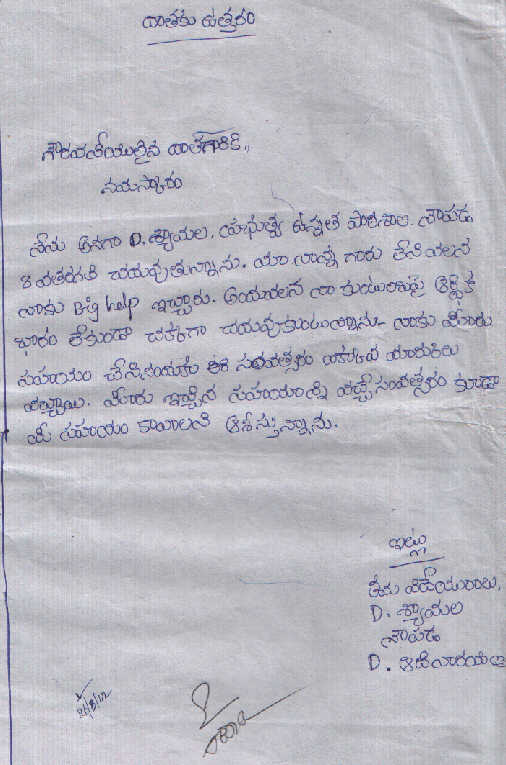 దాతకు ఉత్తరం
గౌరవనీయులైన దాతగారికి,,
నమస్కారం
నేను అనగా D. శ్యామల, మ ఉన్నత పాఠశాల
8 వతరగతి చదువుతున్నాను. మా నాన్న గారు లేనివలన
నాకు Big help ఇచ్చారు. అందువలన నా కుటుంబంపై ఆర్థిక
భారం లేకుండా చక్కగా చదువుకుంటున్నాను. నాకు మీరు
సహాయం చేసినందుకు ఈ సంవత్సరం మార్కులు
వచ్చాయి. మీరు ఇచ్చిన సహాయాన్ని వచ్చే సంవత్సరం కూడా
మీ సహాయం కావాలని ఆశిస్తున్నాను.
ఇట్లు
మీ విధేయురాలు,
D. శ్యామల
D. ఆదినారాయణ